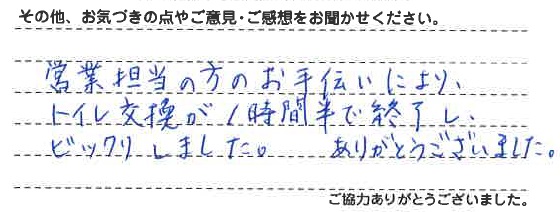 その他、お気づきの点やご意見・ご感想をお聞かせください。
営業担当の方のお手伝いにより、
トイレ交換が1時間半で終了し、
ビックリしました。 ありがとうございました。
ご協力ありがとうございました。